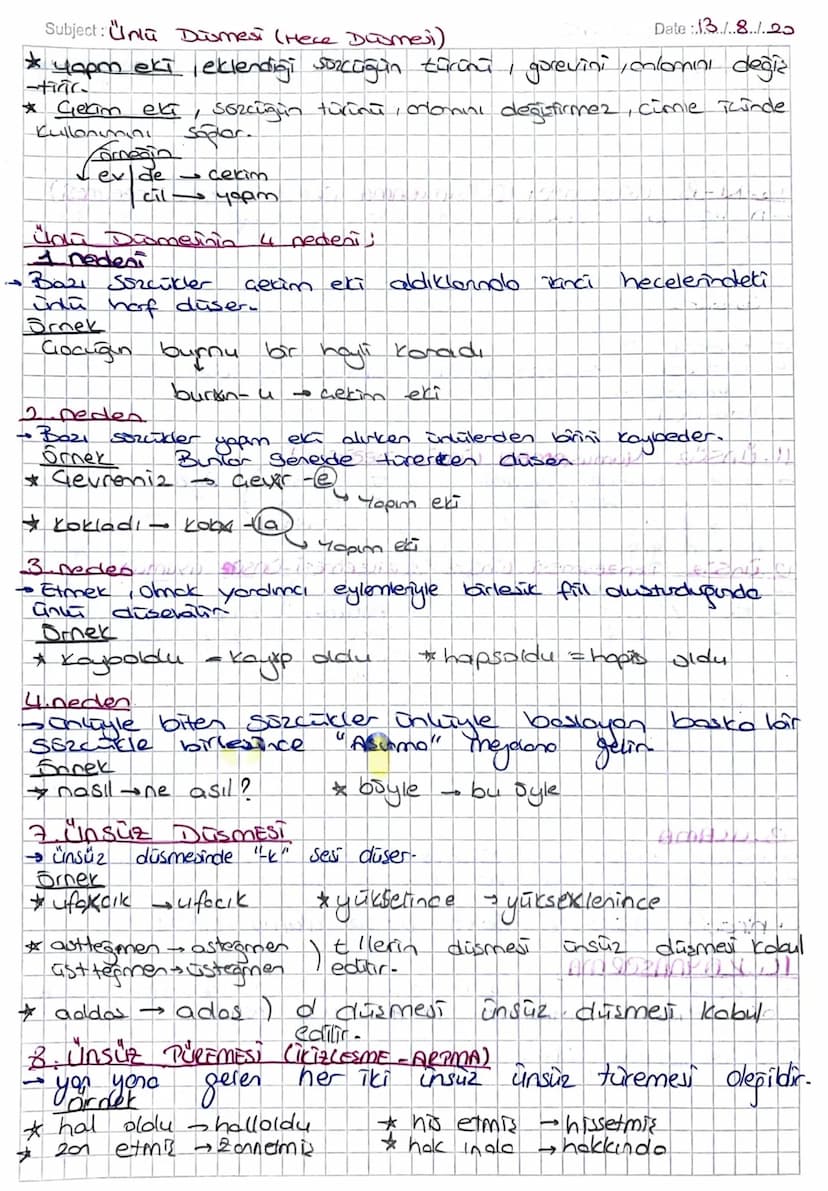 Subject: Ünlü Düşmesi (Hece Düşmesi) Date: 13/8/20
* yapım eki, eklendiği sözcüğün türünü, görevini, anlamını değiş
-tirir.
* Çekim eki, sözcüğün türünü, anlamını değiştirmez, cümle içinde
kullanımını sağlar.
örneğin
ev de → çekim
cil → yapım
Ünlü Düşmesinin 4 nedeni;
1 nedeni
→ Bazı sözcükler çekim eki aldıklarında ikinci hecelerindeki
ünlü harf düşer.
Örnek
Çocuğun burnu bir hayli kanadı
burun-u → çekim eki
2. neden
→ Bazı sözcükler yapım eki alırken ünlülerden birini kaybeder.
Örnek Bunlar genelde türerken düşer
* Çevremiz → Çevir -e
→ yapım eki
* kokladı → koku -la
→ yapım eki
3. neden
→ Etmek, olmak yardımcı eylemleriyle birleşik fiil oluşturduğunda
ünlü düşebilir
Örnek
* kayboldu = kayıp oldu * hapsoldu = hapis oldu
4. neden
→ ünlüyle biten sözcükler ünlüyle başlayan başka bir
sözcükle birleşince "Aşınma" meydana gelir
Örnek
* nasıl → ne asıl? * böyle → bu öyle
7. ÜNSÜZ DÜŞMESİ
→ ünsüz düşmesinde "-k" sesi düşer.
Örnek
* ufakcık → ufacık * yükselince → yükseklenince
* astteğmen → asteğmen ) t llerin düşmesi ünsüz düşmesi kabul
üstteğmen → üsteğmen ) edilir.
* addaş → adaş ) d düşmesi ünsüz düşmesi kabul
edilir.
8. ÜNSÜZ TÜREMESİ (İKİZLEŞME - ARTMA)
→ yan yana gelen her iki ünsüz ünsüz türemesi değildir.
Örnek
* hal oldu → halloldu * his etmiş → hissetmiş
* zan etmiş → zannetmiş * hak ında → hakkında